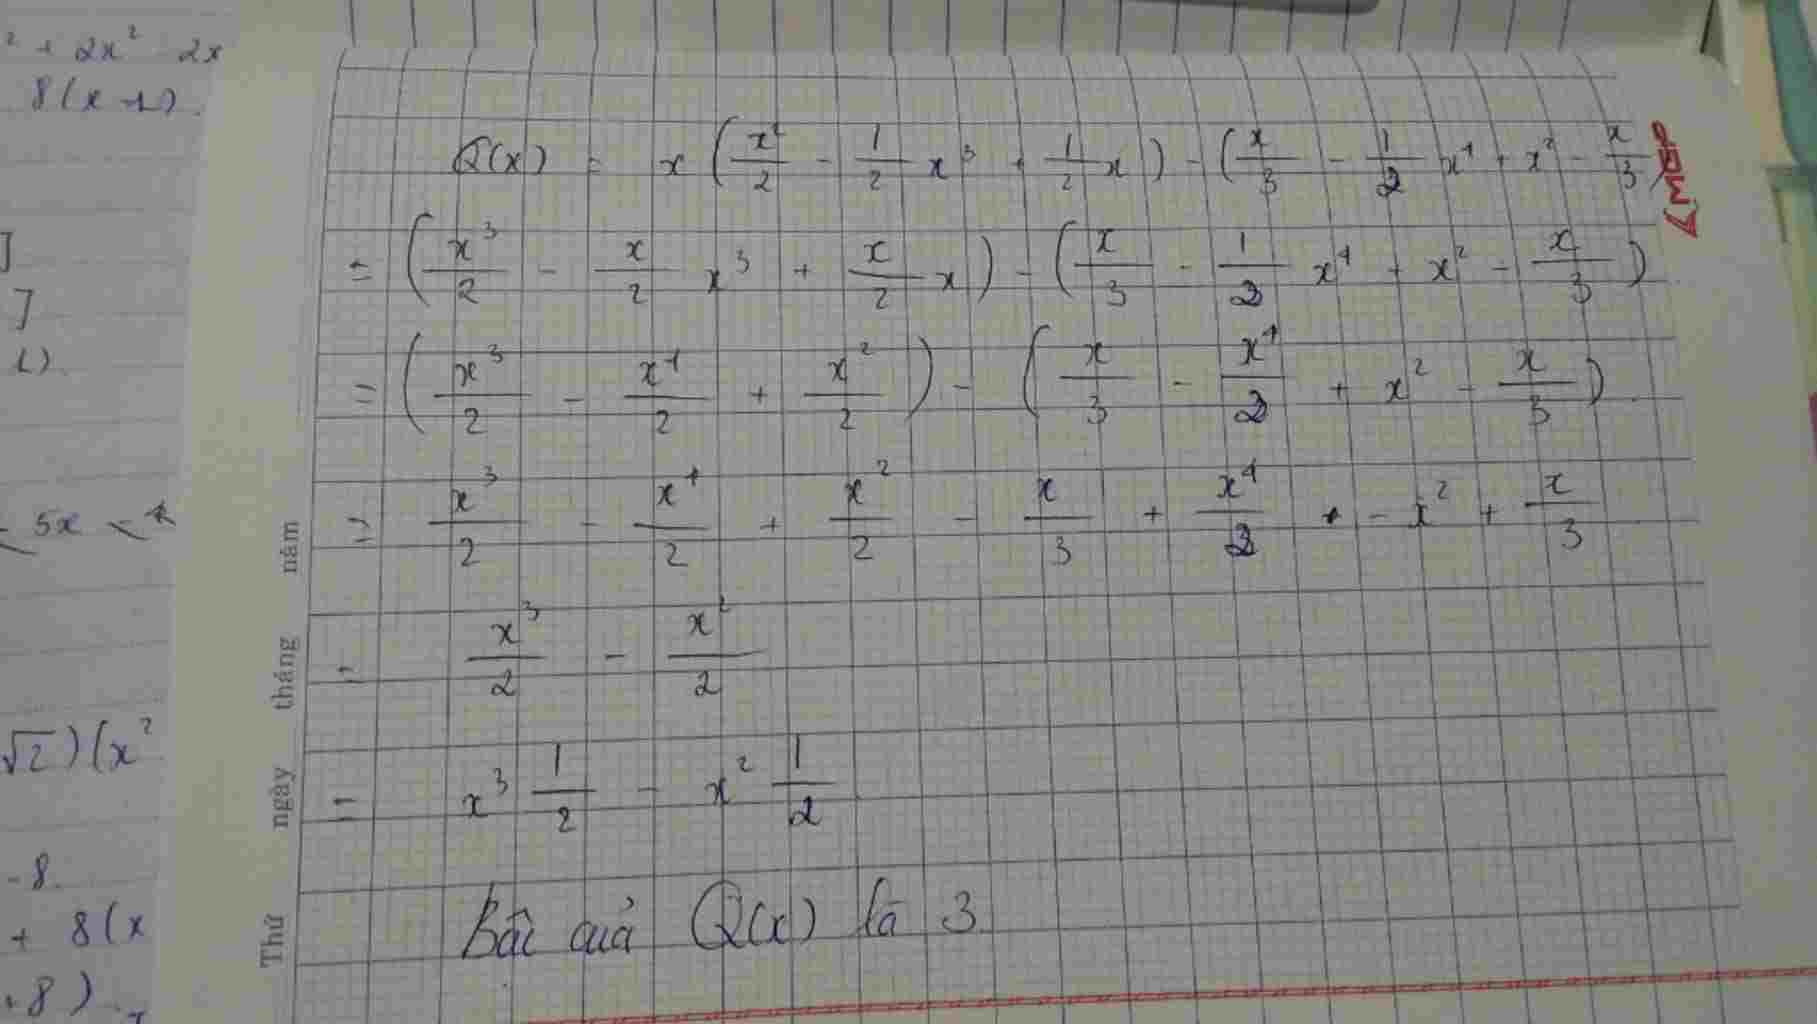 ² + 2x² - 2x
8(x - 1).
Q(x) = x (x²/2 - 1/2 x³ + 1/2 x) - (x/3 - 1/2 x⁴ + x² - x/3)
= (x³/2 - x/2 x³ + x/2 x) - (x/3 - 1/2 x⁴ + x² - x/3)
]
]
= (x³/2 - x⁴/2 + x²/2) - (x/3 - x⁴/2 + x² - x/3)
= x³/2 - x⁴/2 + x²/2 - x/3 + x⁴/2 - x² + x/3
- 5x
= x³/2 - x²/2
√2)(x²
= x³ 1/2 - x² 1/2
-8.
+ 8(x
Bậc của Q(x) là 3.
+8)
Thứ ngày tháng năm